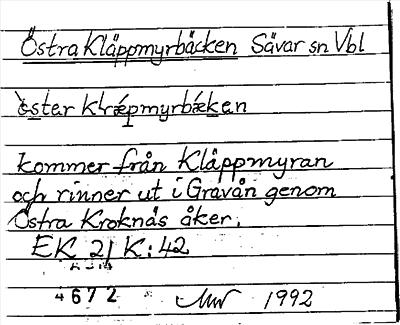 Östra Kläppmyrbäcken Sävar sn Vbl
öster klæpmyrbækan
kommer från Kläppmyran
och rinner ut i Gravån genom
Östra Kroknäs åker.
EK 21 K:42
4672 1992